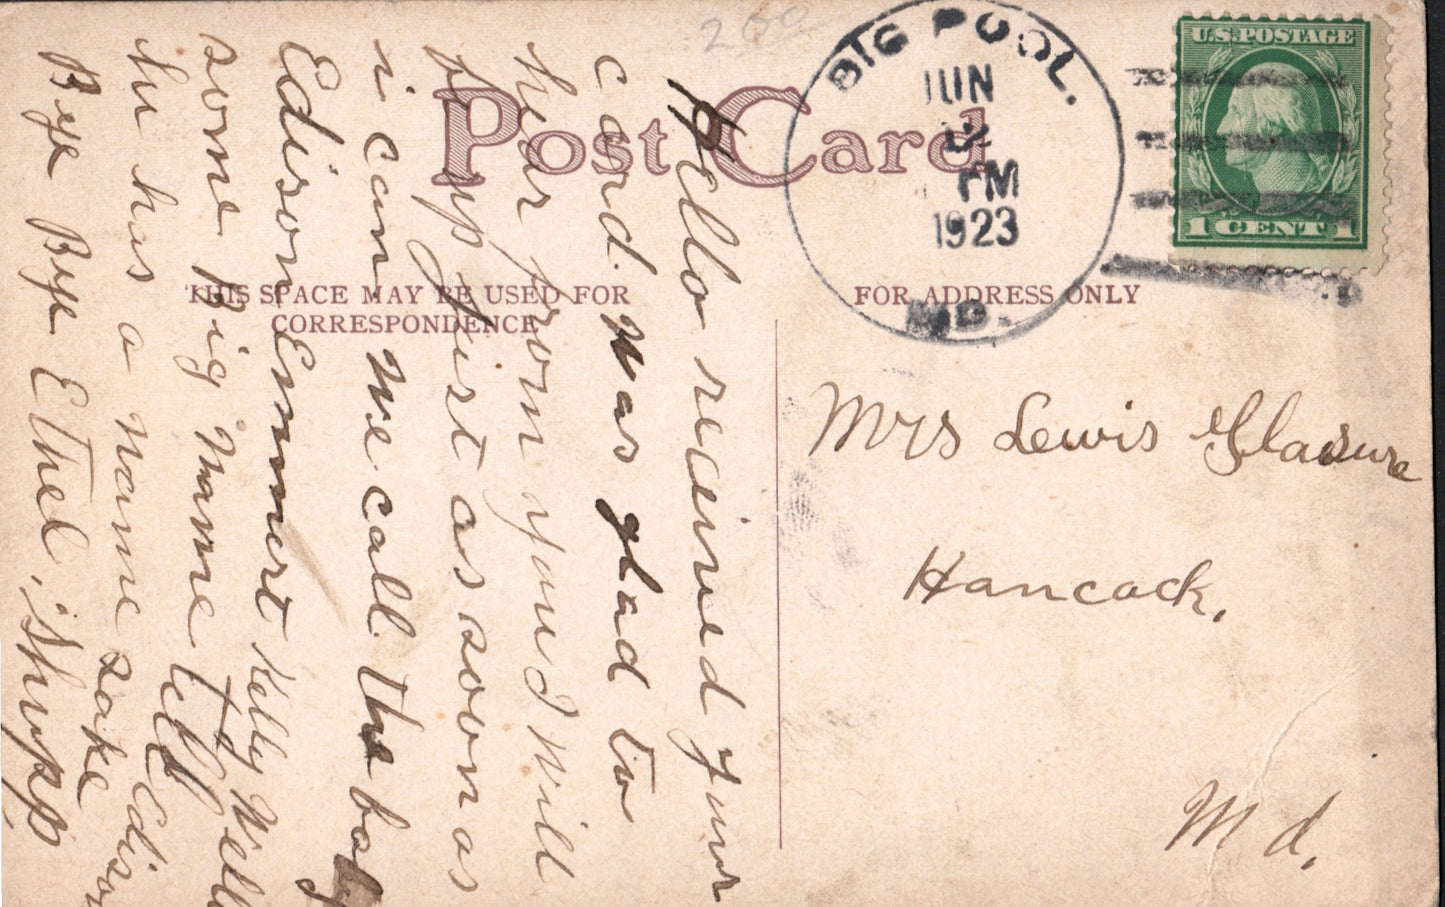 200
Post Card
BIG POOL.
JUN
12
PM
1923
MD.
U.S. POSTAGE
1 CENT 1
THIS SPACE MAY BE USED FOR
CORRESPONDENCE
FOR ADDRESS ONLY
Hello recived your
card. Was glad to
hear from you I will
be up just as soon as
i can. We call the boy
Edison Emmert Kelly Well
some Big Name tell
him has a name sake Edison
Bye Bye Ethel. Shupp
Mrs Lewis Glasure
Hancock,
Md.